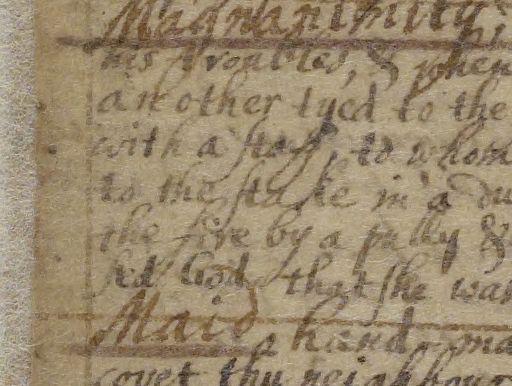 Magnanimity
his troubles, & when
another tyed to the
with a staff, to whom
to the stake in a du
the fire by a pully &
sed God, that she was
Maid
a hand-ma
covet thy neighbour